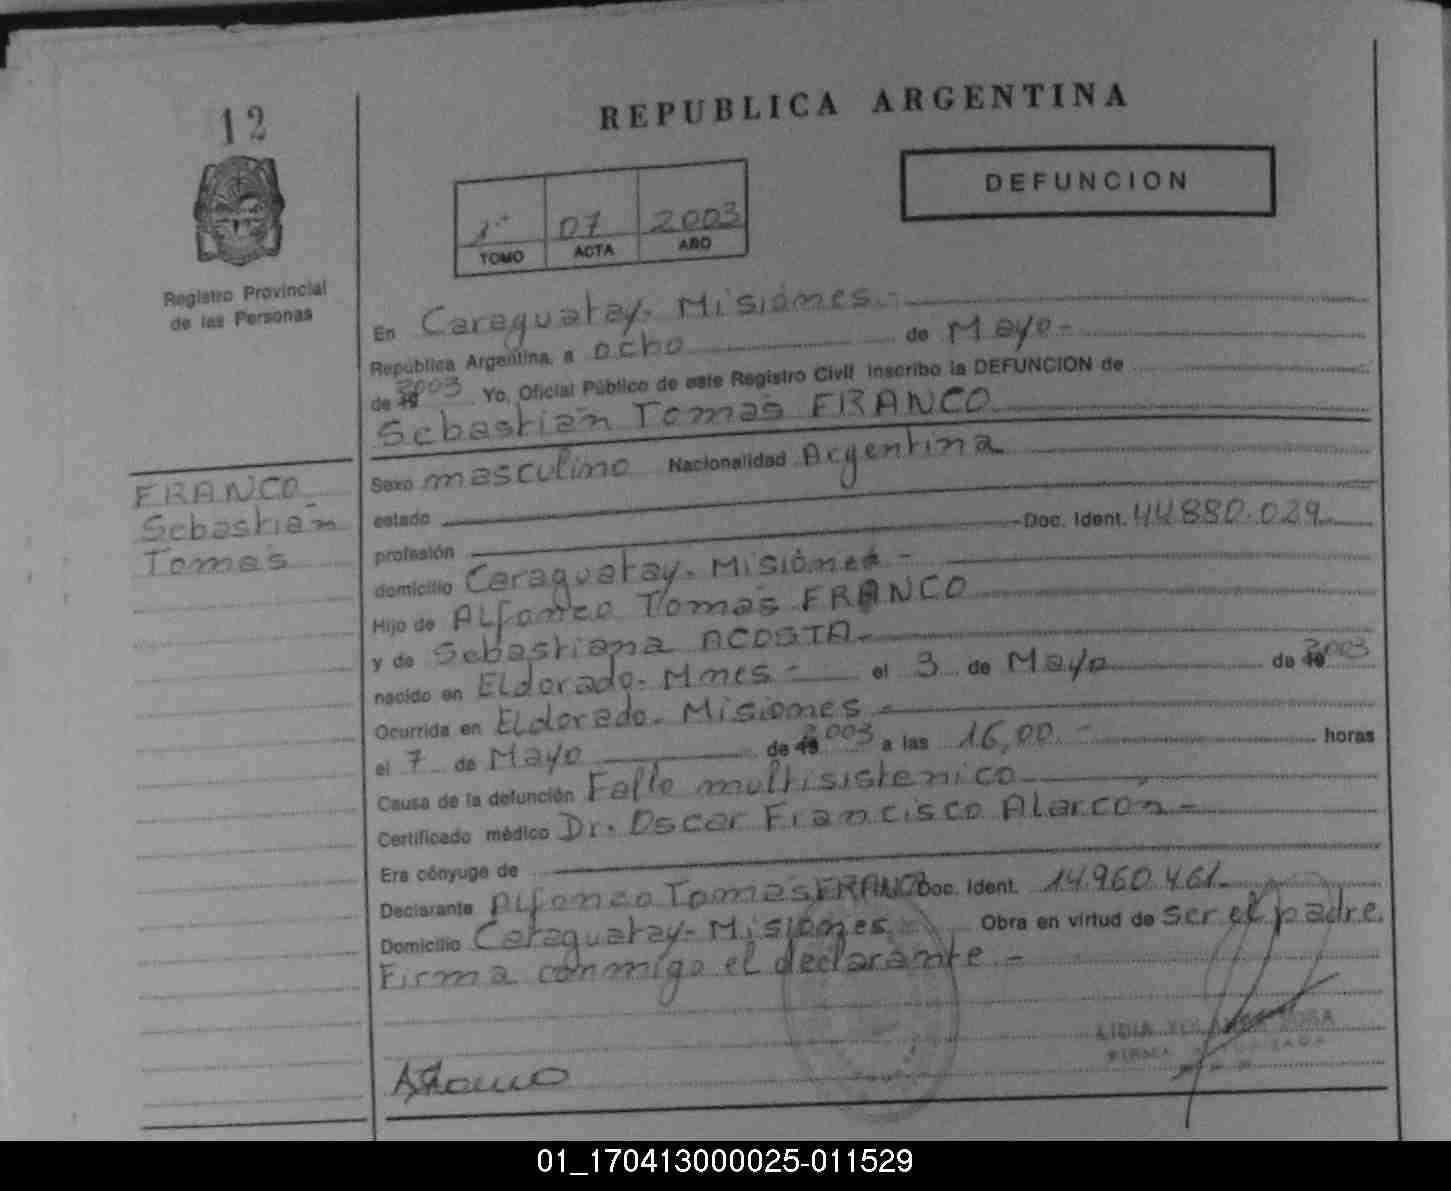 12
REPUBLICA ARGENTINA
DEFUNCION
1º 07 2003
TOMO ACTA AÑO
Registro Provincial
de las Personas
En Caraguatay. Misiones -
República Argentina, a ocho de Mayo -
de 19 2003 Yo, Oficial Público de este Registro Civil inscribo la DEFUNCION de
Sebastián Tomas FRANCO
FRANCO
Sebastián
Tomas
Sexo masculino Nacionalidad Argentina
estado
profesión Doc. Ident. 44880.029
domicilio Caraguatay. Misiones -
Hijo de Alfonzo Tomas FRANCO
y de Sebastiana ACOSTA -
nacido en Eldorado. Mnes - el 3 de Mayo de 19 2003
Ocurrida en Eldorado. Misiones -
el 7 de Mayo de 19 2003 a las 16,00 - horas
Causa de la defunción Fallo multisistemico
Certificado médico Dr. Oscar Francisco Alarcón -
Era cónyuge de
Declarante Alfonzo Tomas FRANCO Doc. Ident. 14.960.461
Domicilio Caraguatay - Misiones - Obra en virtud de ser el padre.
Firma conmigo el declarante -
AFranco
LIDIA
FIRMA
01_170413000025-011529